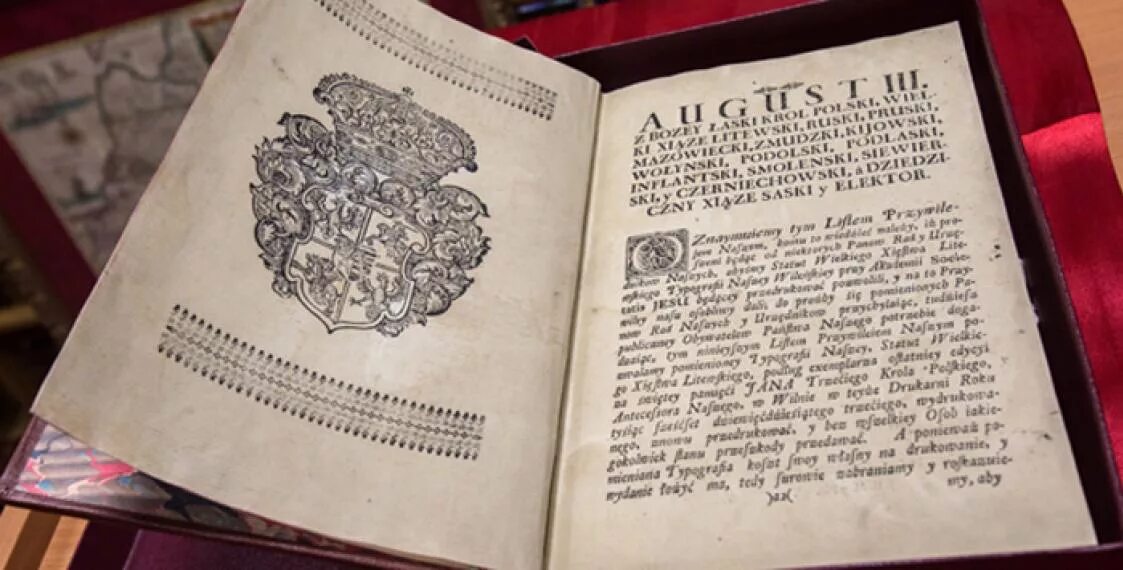 AUGUST III.
Z BOZEY ŁASKI KROL POLSKI, WIEL-
KI XIĄZE LITEWSKI, RUSKI, PRUSKI,
MAZOWIECKI, ZMUDZKI, KIJOWSKI,
WOŁYNSKI, PODOLSKI, PODLASKI,
INFLANTSKI, SMOLENSKI, SIEWIER-
SKI, y CZERNIECHOWSKI, à DZIEDZI-
CZNY XIĄZE SASKI y ELEKTOR.
Znaymujemy tym Liſtem Przywile-
jem Naſzym, komu to wiedzieć należy, iż pro-
ſzeni będąc od niektorych Panow Rad y Urzę-
dnikow Naſzych, abyśmy Statut Wielkiego Xięſtwa Lite-
wſkiego Typografii Naſzey Wileńſkiey przy Akademii Socie-
tatis JESU będącey przedrukować pozwolili, y na to Przy-
wiley naſz oſobliwy dali, do proźby ſię pomienionych Pa-
now Rad Naſzych y Urzędnikow przychylając, tudzieſz
publicaney Obywatelow Pańſtwa Naſzego potrzebie doga-
dzając, tym ninieyſzym Liſtem Przywilejem Naſzym po-
zwalamy pomienioney Typografii Naſzey, Statut Wielkie-
go Xięſtwa Litewſkiego, podług exemplarza oſtatniey edycyi
za świętey pamięci JANA Trzeciego Krola Polſkiego,
Anteceſſora Naſzego, w Wilnie w teyże Drukarni Roku
tyſiąc ſześćſet dziewięćdzieſiątego trzeciego, wydrukowa-
nego, znowu przedrukować, y bez wſzelkiey Oſob jakie-
gokolwiek ſtanu przeſzkody przedawać. A ponieważ po-
mieniona Typografia koſzt ſwoy właſny na drukowanie, y
wydanie łożyć ma, tedy ſurowie zabraniamy y roſkazuie-
my, aby